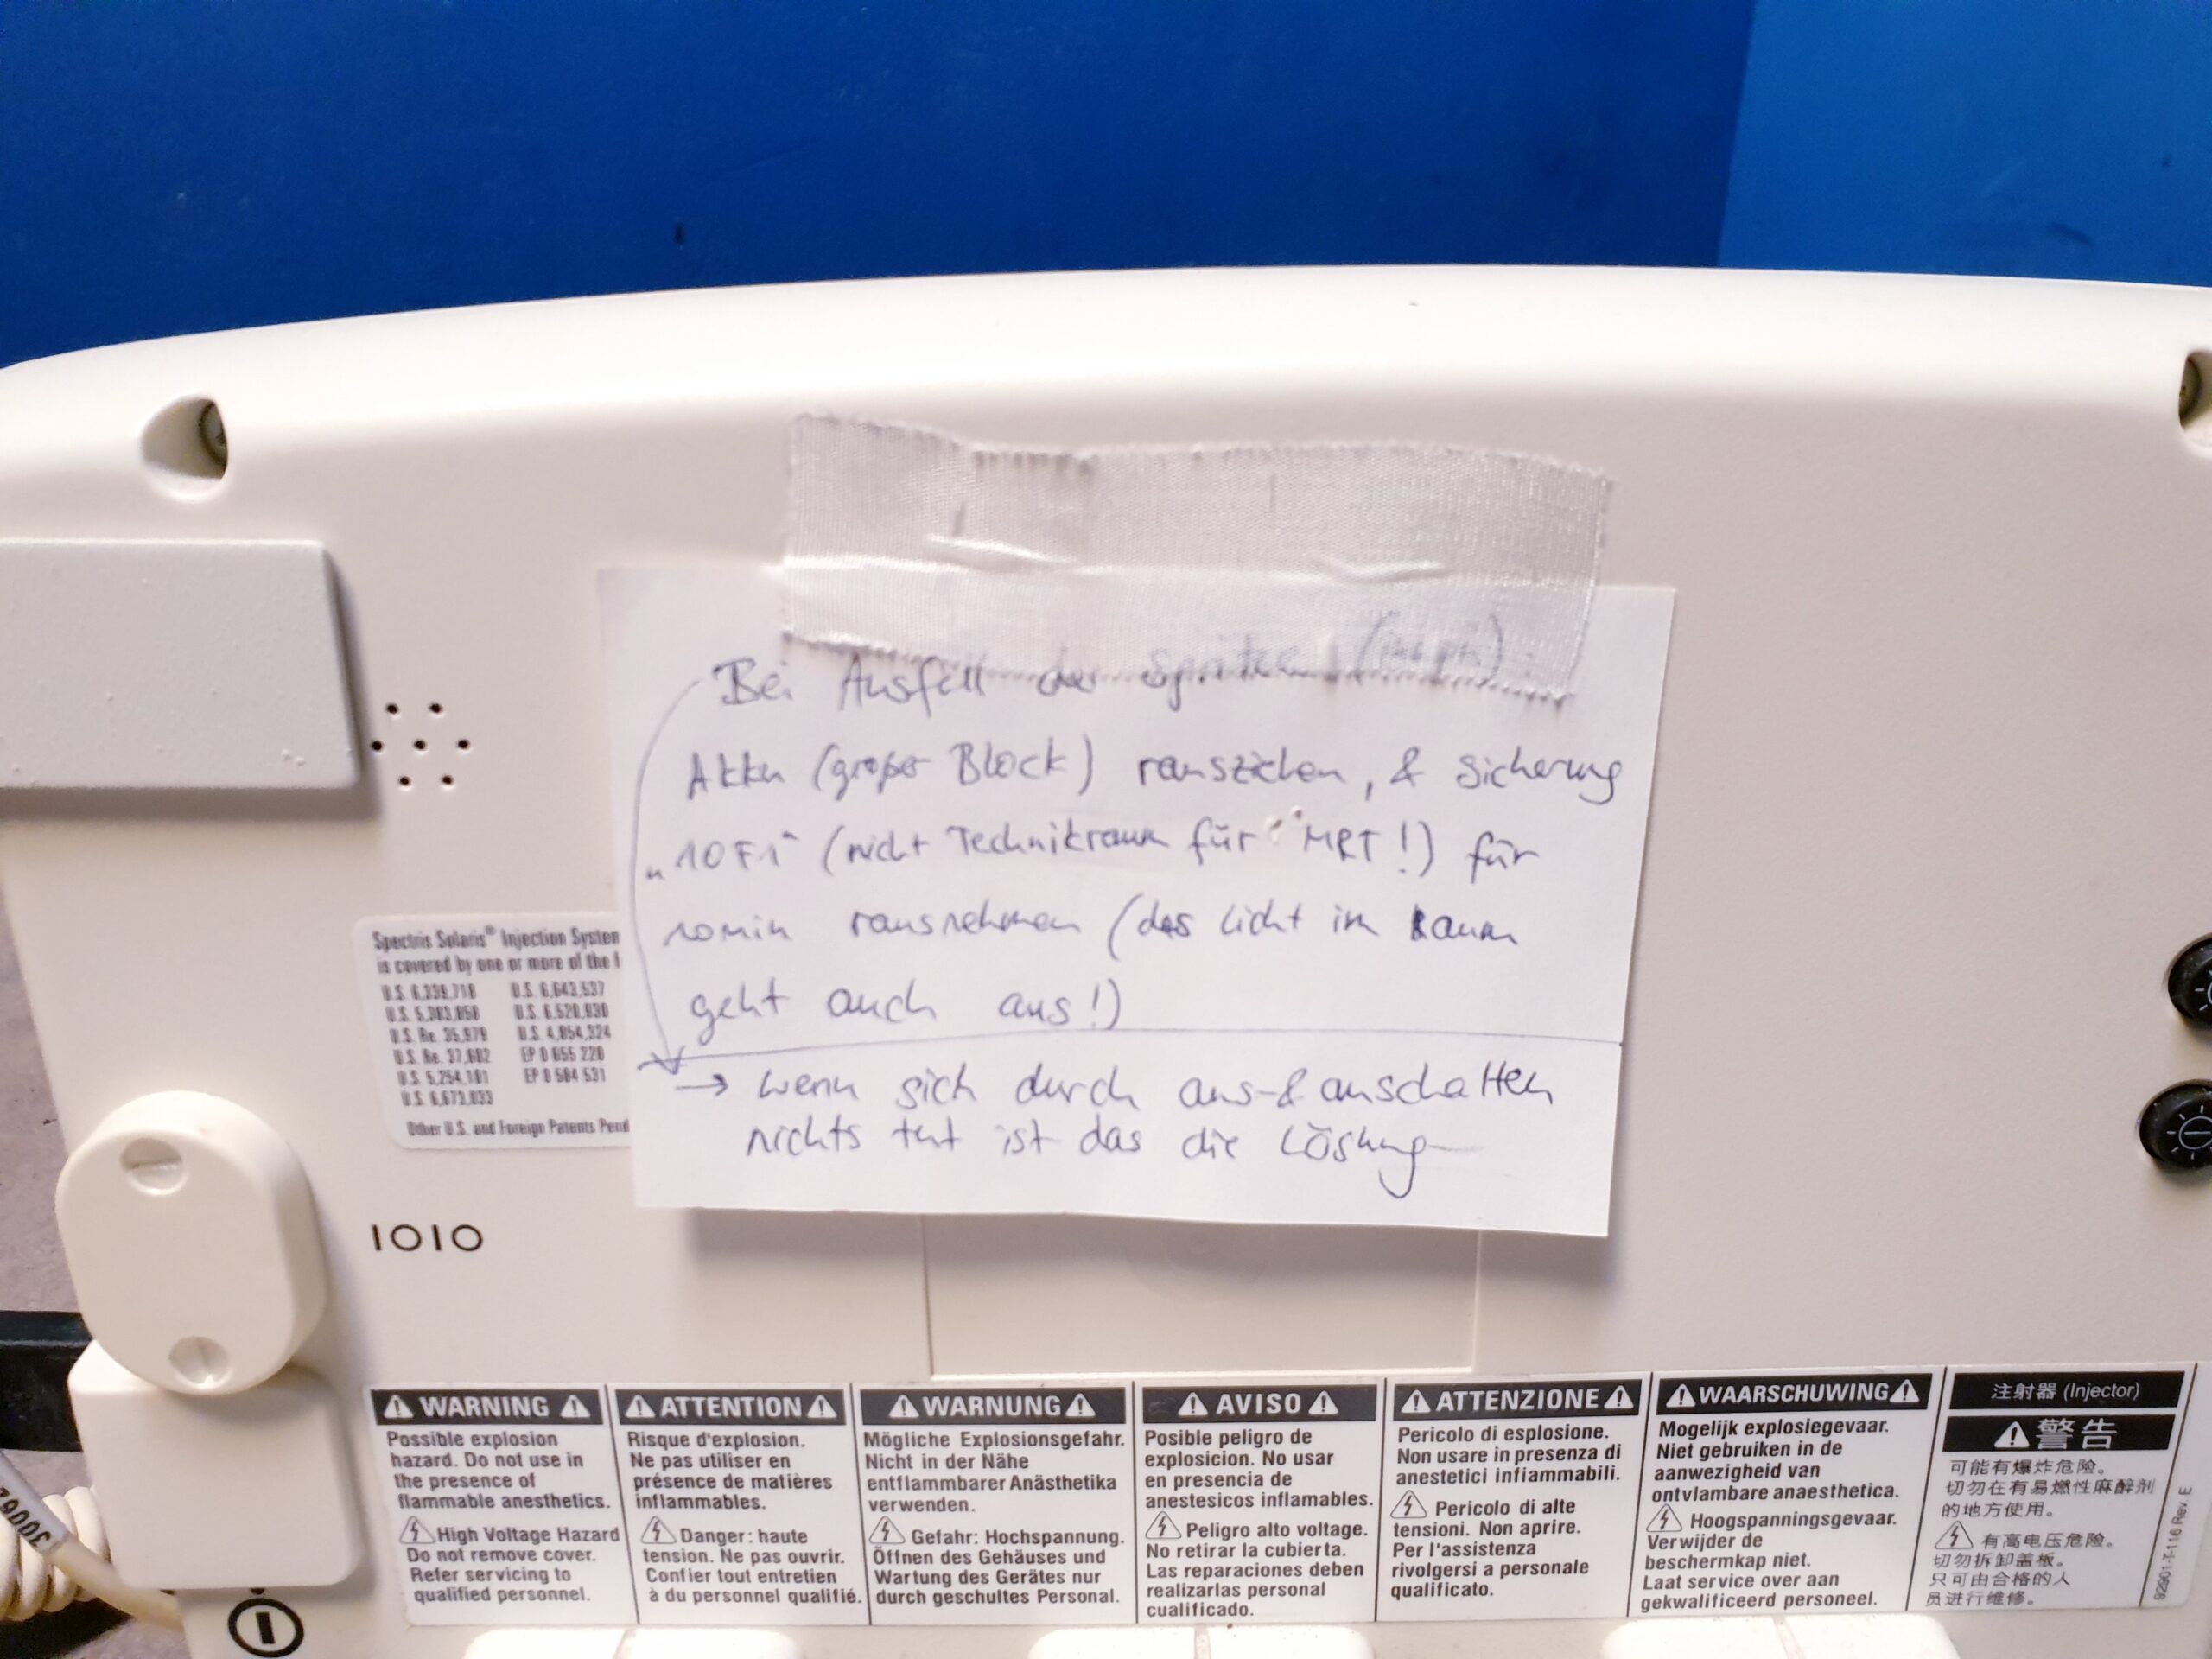 Bei Ausfall der Spritze
Akku (großer Block) rausziehen, & Sicherung
„10F1“ (nicht Technikraum für MRT!) für
10min rausnehmen (das Licht im Raum
geht auch aus!)
→ wenn sich durch aus-& anschalten
nichts tut ist das die Lösung
Spectris Solaris® Injection System
is covered by one or more of the f
U.S. 6,339,718 U.S. 6,643,537
U.S. 5,383,858 U.S. 6,520,930
U.S. Re. 35,979 U.S. 4,854,324
U.S. Re. 37,602 EP 0 655 220
U.S. 5,254,101 EP 0 584 531
U.S. 6,673,033
Other U.S. and Foreign Patents Pend
IOIO
WARNING
Possible explosion
hazard. Do not use in
the presence of
flammable anesthetics.
High Voltage Hazard
Do not remove cover.
Refer servicing to
qualified personnel.
ATTENTION
Risque d'explosion.
Ne pas utiliser en
présence de matières
inflammables.
Danger: haute
tension. Ne pas ouvrir.
Confier tout entretien
à du personnel qualifié.
WARNUNG
Mögliche Explosionsgefahr.
Nicht in der Nähe
entflammbarer Anästhetika
verwenden.
Gefahr: Hochspannung.
Öffnen des Gehäuses und
Wartung des Gerätes nur
durch geschultes Personal.
AVISO
Posible peligro de
explosicion. No usar
en presencia de
anestesicos inflamables.
Peligro alto voltage.
No retirar la cubierta.
Las reparaciones deben
realizarlas personal
cualificado.
ATTENZIONE
Pericolo di esplosione.
Non usare in presenza di
anestetici infiammabili.
Pericolo di alte
tensioni. Non aprire.
Per l'assistenza
rivolgersi a personale
qualificato.
WAARSCHUWING
Mogelijk explosiegevaar.
Niet gebruiken in de
aanwezigheid van
ontvlambare anaesthetica.
Hoogspanningsgevaar.
Verwijder de
beschermkap niet.
Laat service over aan
gekwalificeerd personeel.
注射器 (Injector)
警告
可能有爆炸危险。
切勿在有易燃性麻醉剂
的地方使用。
有高电压危险。
切勿拆卸盖板。
只可由合格的人
员进行维修。
92901-T-116 Rev. E